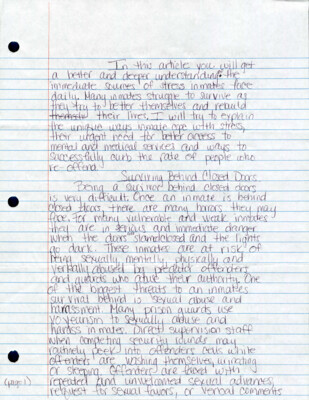 In this article you will get
a better and deeper understanding the
immediate sources of stress inmates face
daily. Many inmates struggle to survive as
they try to better themselves and rebuild
their lives. I will try to explain
the unique ways inmate cope with stress,
their urgent need for better access to
mental and medical services and ways to
successfully curb the rate of people who
re-offend.
Surviving Behind Closed Doors
Being a survivor behind closed doors
is very difficult. Once an inmate is behind
closed doors there are many horrors they may
face. For many vulnerable and weak inmates
they are in serious and immediate danger
when the doors slam closed and the lights
go dark. These inmates are at risk of
being sexually, mentally, physically and
verbally abused by predator offenders
and guards who abuse their authority. One
of the biggest threats to an inmates
survival behind is sexual abuse and
harassment. Many prison guards use
voyeurism to sexually abuse and
harass inmates. Direct supervision staff
when completing security rounds may
routinely peek into offenders cells while
offenders are washing themselves, urinating
or sleeping. Offenders are faced with
(page 1) repeated and unwelcomed sexual advances,
request for sexual favors, or verbal comments